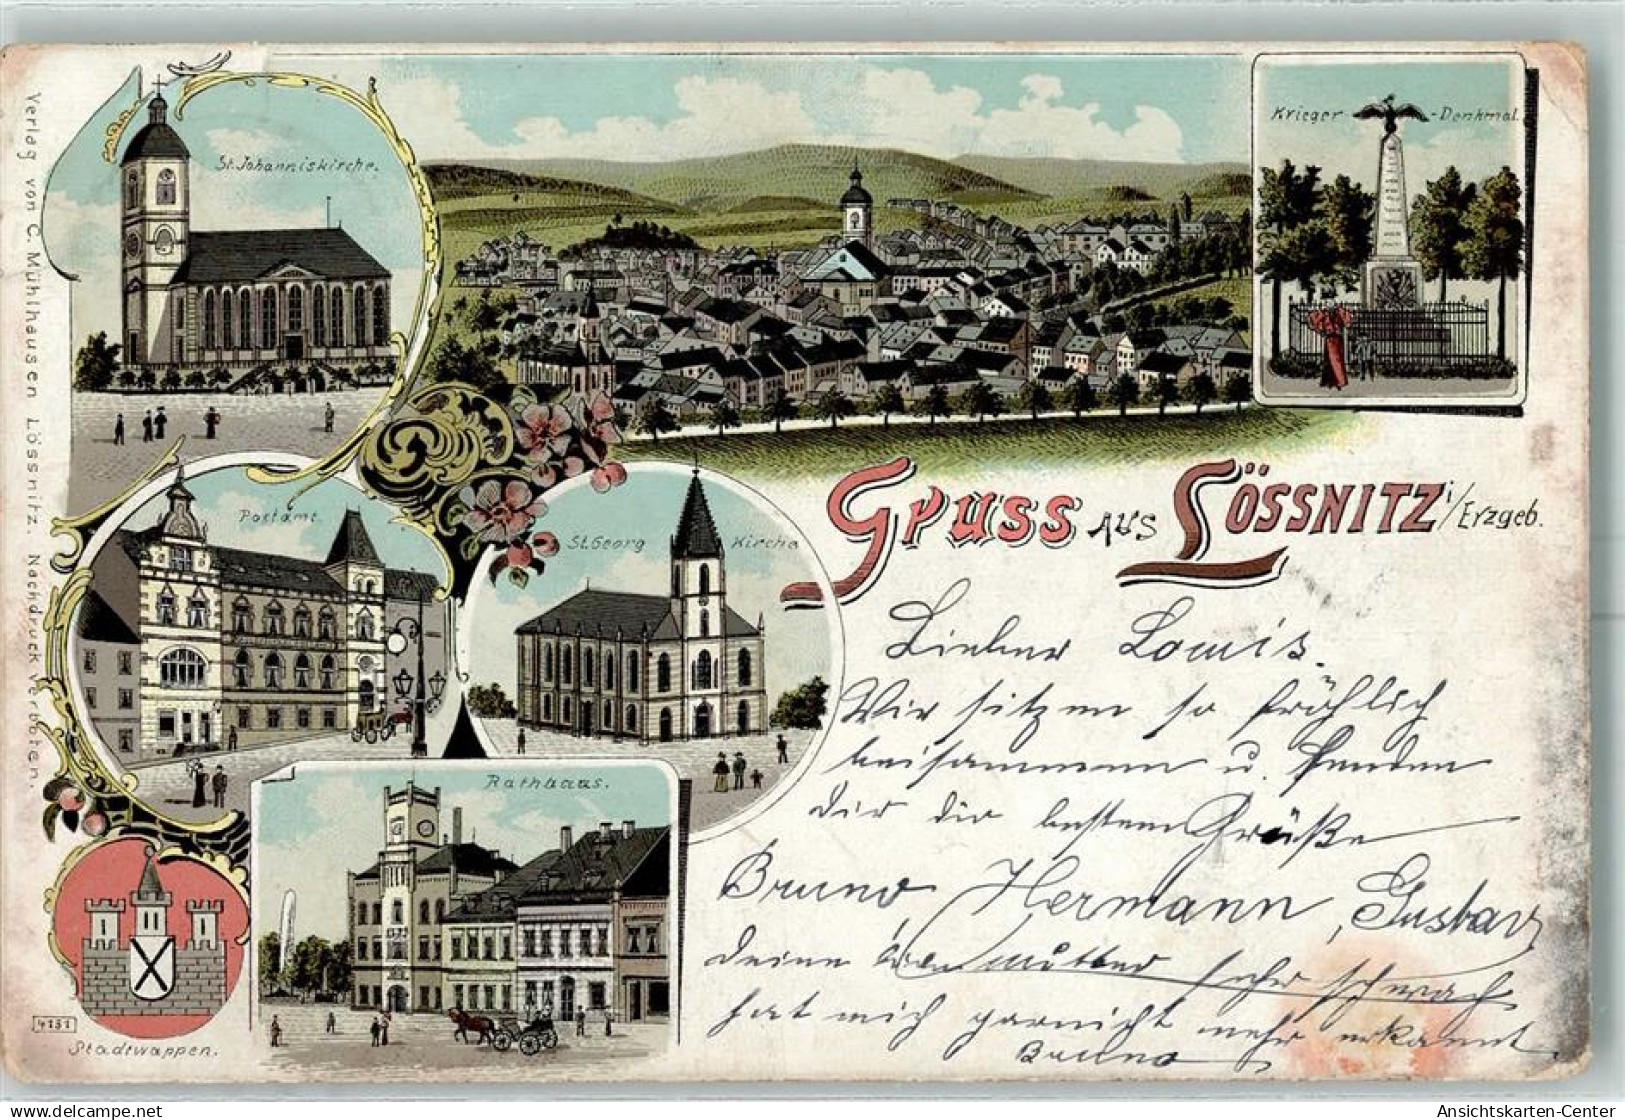 Verlag von C. Mühlhausen Lössnitz. Nachdruck verboten.
St. Johanniskirche.
Krieger-Denkmal.
Postamt.
St. Georg Kirche
Gruss aus Lössnitz i/Erzgeb.
Lieber Louis.
Wir sitzen so fröhlich
beisammen u. senden
dir die besten Grüße
Bruno, Hermann, Gustav
deine Mutter sehr schwach
hat mich garnicht mehr erkannt
Bruno
Rathhaus.
4131
Stadtwappen.
oldthing.de
Ansichtskarten-Center